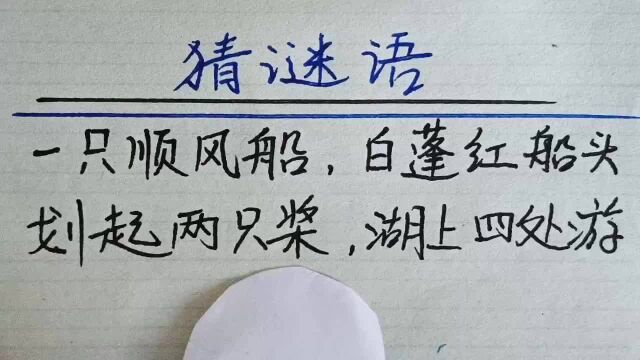 猜谜语
一只顺风船，白蓬红船头
划起两只桨，湖上四处游